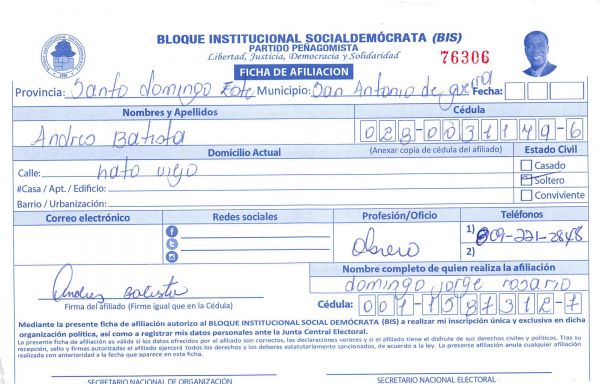 BLOQUE INSTITUCIONAL SOCIALDEMÓCRATA (BIS)
PARTIDO PEÑAGOMISTA
Libertad, Justicia, Democracia y Solidaridad
76306
FICHA DE AFILIACION
Provincia: Santo domingo Este Municipio: San Antonio de guerra Fecha:
Nombres y Apellidos Cédula
Andres Batista 029-0031149-6
Domicilio Actual (Anexar copia de cédula del afiliado) Estado Civil
Calle: hato viejo Casado
#Casa / Apt. / Edificio: Soltero
Barrio / Urbanización: Conviviente
Correo electrónico Redes sociales Profesión/Oficio Teléfonos
Obrero 1) 809-221-2848
2)
Nombre completo de quien realiza la afiliación
Andres Batista domingo jorge rosario
Firma del afiliado (Firme igual que en la Cédula) Cédula: 001-1587312-7
Mediante la presente ficha de afiliación autorizo al BLOQUE INSTITUCIONAL SOCIAL DEMÓCRATA (BIS) a realizar mi inscripción única y exclusiva en dicha
organización política, así como a registrar mis datos personales ante la Junta Central Electoral.
La presente ficha de afiliación es válida si los datos ofrecidos por el afiliado son correctos, las declaraciones veraces y si el afiliado tiene el disfrute de sus derechos civiles y políticos. Tras su
recepción, sello y firmas autorizadas el afiliado ejercerá todos los derechos y los deberes estatutariamente sancionados, de acuerdo a la ley. La presente afiliación anula cualquier afiliación
realizada con anterioridad a la fecha que aparece en esta ficha.
SECRETARIO NACIONAL DE ORGANIZACIÓN SECRETARIO NACIONAL ELECTORAL